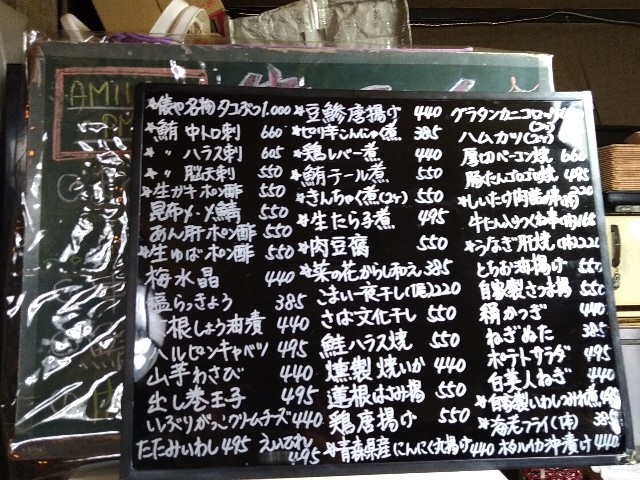 AMII
*俵や名物タコぶつ1.000
*鮪 中トロ刺 660
*〃 ハラス刺 605
*〃 脳天刺 550
*生ガキポン酢 550
昆布〆・〆鯖 550
あん肝ポン酢 550
*生ゆばポン酢 550
梅水晶 440
塩らっきょう 385
大根しょう油漬 440
ハルピンキャベツ 495
山芋わさび 440
出し巻玉子 495
いぶりがっこクリームチーズ 440
たたみいわし 495 えいひれ 495
*豆鯵唐揚げ 440
*ピリ辛こんにゃく煮 385
*鶏レバー煮 440
*鮪テール煮 550
*きんちゃく煮(2ヶ) 550
*生たら子煮 495
*肉豆腐 550
*菜の花からし和え 385
こまい一夜干し(1尾)220
さば文化干し 550
鮭ハラス焼 550
燻製焼いか 440
蓮根はさみ揚 550
鶏唐揚げ 550
*青森県産にんにく丸揚げ 440
グラタンカニコロッケ(2ヶ)
ハムカツ(2ヶ)
厚切ベーコン焼 660
豚たんゴロゴロ焼 495
*しいたけ肉詰め串(1本)220
牛たん入りつくね串(1本)165
*うなぎ肝焼(1本)220
とちお油揚げ 550
自家製さつま揚 550
絹かつぎ 440
ねぎぬた 385
ポテトサラダ 495
白美人ねぎ 440
*自家製いわしつみれ煮 495
*海老フライ(1本) 385
ホタルイカ沖漬け 440